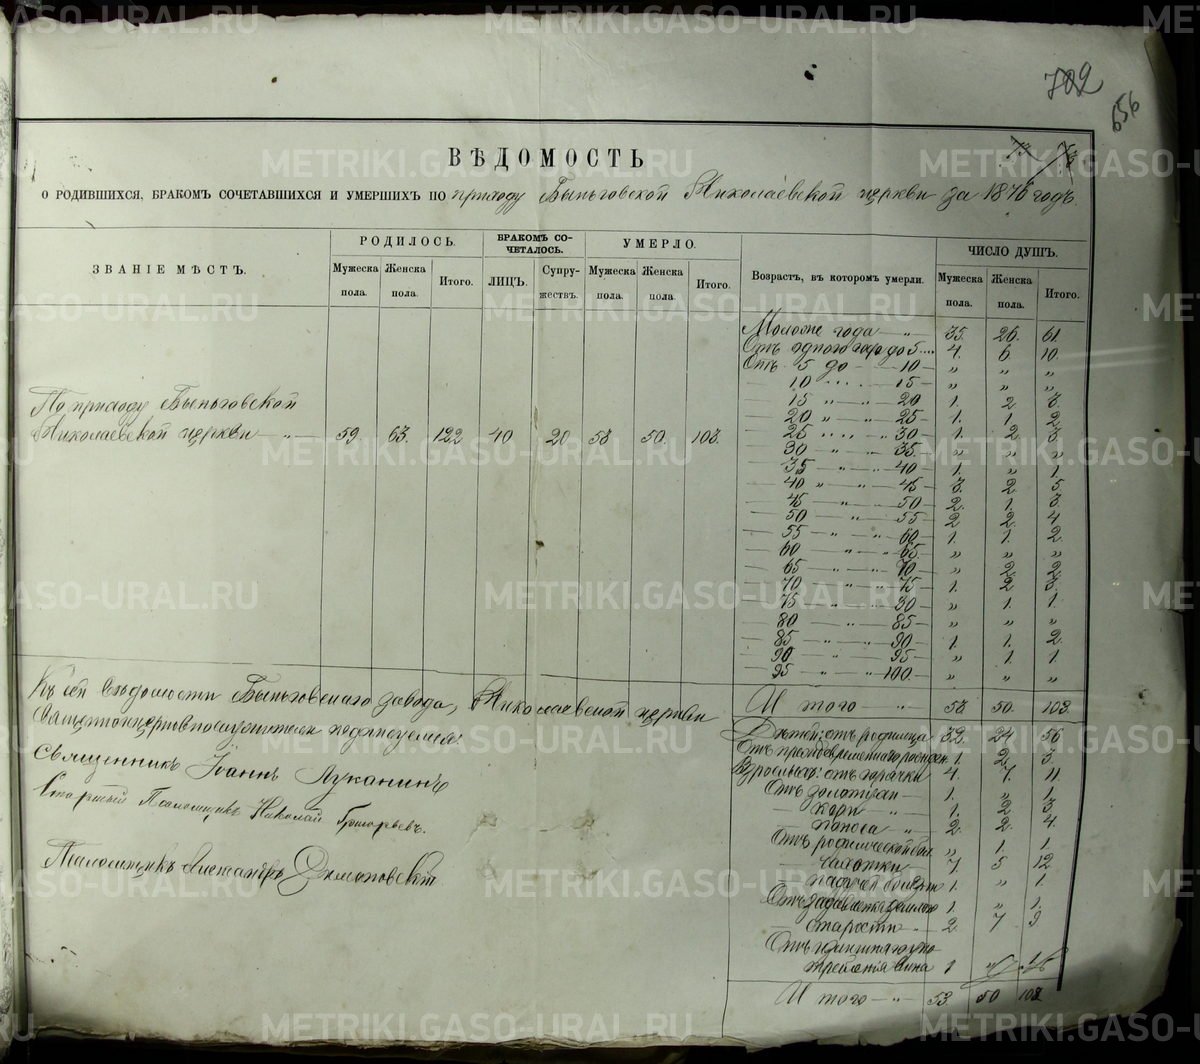 702
656
ВѢДОМОСТЬ
О РОДИВШИХСЯ, БРАКОМЪ СОЧЕТАВШИХСЯ И УМЕРШИХЪ ПО приходу Быньговской Николаевской церкви за 1876 годъ.
ЗВАНІЕ МѢСТЪ.
РОДИЛОСЬ.
БРАКОМЪ СО-
ЧЕТАЛОСЬ.
УМЕРЛО.
Возрастъ, въ которомъ умерли.
ЧИСЛО ДУШЪ.
Мужеска пола.
Женска пола.
Итого.
ЛИЦЪ.
Супру-
жествъ.
Мужеска пола.
Женска пола.
Итого.
Мужеска пола.
Женска пола.
Итого.
По приходу Быньговской
Николаевской церкви — „ — 59 63. 122 40 20 53 50. 103.
Моложе года — „ — 35. 26. 61.
Отъ одного года до 5 .... 4. 6. 10.
Отъ 5 до — 10 — „ „ „
— 10 .... 15 — „ „ „
15 — „ — 20 1. 2 3.
— 20 „ — „ — 25 — 1. 1. 2.
— 25 .... „ 30 — 1. 2 3.
— 30 — „ — 35. — „ „ „
— 35 — „ — 40 — 1. „ 1.
— 40 „ — „ — 45 — 3. 2. 5
— 45 — „ — 50 — 2. 1. 3.
— 50 — „ — 55 — 2 2. 4
— 55 — „ — „ 60 — 1. 1. 2.
— 60 — „ — 65. — „ „ „
— 65 — „ — 70 — „ 2. 2.
— 70 — „ — 75 — 1. 2 3.
— 75 — „ — 80 — „ 1. 1.
— 80 — „ — 85 — „ „ „
— 85 — „ — 90 — 1. 1. 2.
— 90 — „ — 95 — „ 1. 1.
— 95 — „ — 100. — „ „ „
Итого — „ — 53. 50. 103.
Къ сей Вѣдомости Быньговскаго завода, Николаевской церкви
Священноцерковнослужители подписуемся:
Священникъ Іоаннъ Луканинъ
Старшій Псаломщикъ Николай Григорьевъ.
Псаломщикъ Александръ
Дѣтей: отъ родимца 32. 24 56
Отъ преждевременнаго рожден 1. 2 3.
Взрослыхъ: отъ горячки 4. 7. 11
Отъ 1. „ 1.
— кори — „ 1. 2 3.
— поноса „ 2. 2. 4.
Отъ родильческой бол „ 1. 1.
— чахотки 7. 5 12
— падучей болѣзни 1. „ 1.
Отъ задавленія землею 1. „ 1.
— старости „ 2. 7 9
Отъ излишняго упо
требленія вина 1 „ 1
Итого — „ 53. 50 103
METRIKI.GASO-URAL.RU